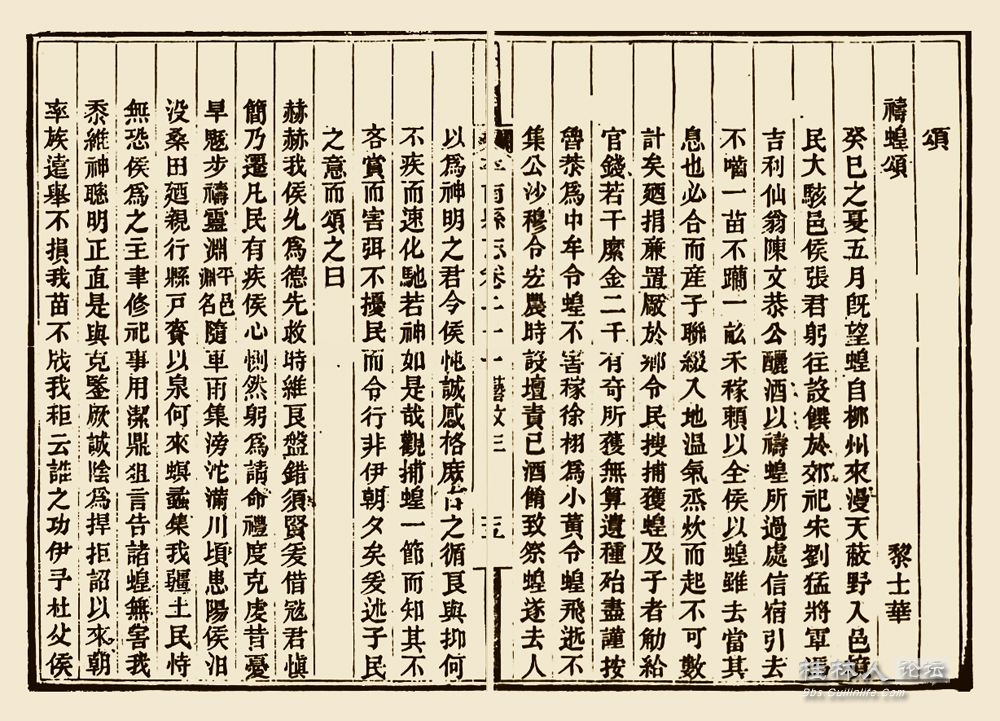 頌
禱蝗頌 黎士華
癸巳之夏五月旣望蝗自柳州來漫天蔽野入邑境
民大駭邑侯張君躬往設饌於郊祀宋劉猛將軍
吉利仙翁陳文恭公釃酒以禱蝗所過處信宿引去
不嚙一苗不躪一畝禾稼賴以全侯以蝗雖去當其
息也必合而産子聯綴入地温氣烝炊而起不可數
計矣廼捐亷置厰於鄉令民搜捕獲蝗及子者觔給
官錢若干縻金二千有奇所獲無算遺種殆盡謹按
魯恭爲中牟令蝗不害稼徐栩爲小黄令蝗飛逝不
集公沙穆令宏農時設壇責已酒餚致祭蝗遂去人
平南縣志卷二十一 藝文三 五
以爲神明之君今侯忱誠感格庶古之循良與抑何
不疾而速化馳若神如是哉觀捕蝗一節而知其不
吝賞而害弭不擾民而令行非伊朝夕矣爰述子民
之意而頌之曰
赫赫我侯允爲德先救時維良盤錯須賢爰借冦君愼
簡乃遷凡民有疾侯心惻然躬爲請命禮度克虔昔憂
旱魃步禱靈淵平邑淵名隨車雨集滂沱滿川頃患陽侯汨
没桑田廼親行縣戸賚以泉何來螟螽集我疆土民恃
無恐侯爲之主聿修祀事用潔鼎俎言告諸蝗無害我
黍維神聰明正直是與克鑒厥誠陰爲捍拒詔以來朝
率族遠舉不損我苗不戕我秬云誰之功伊予杜父侯
桂林人 论坛
Bbs.Guilinlife.Com